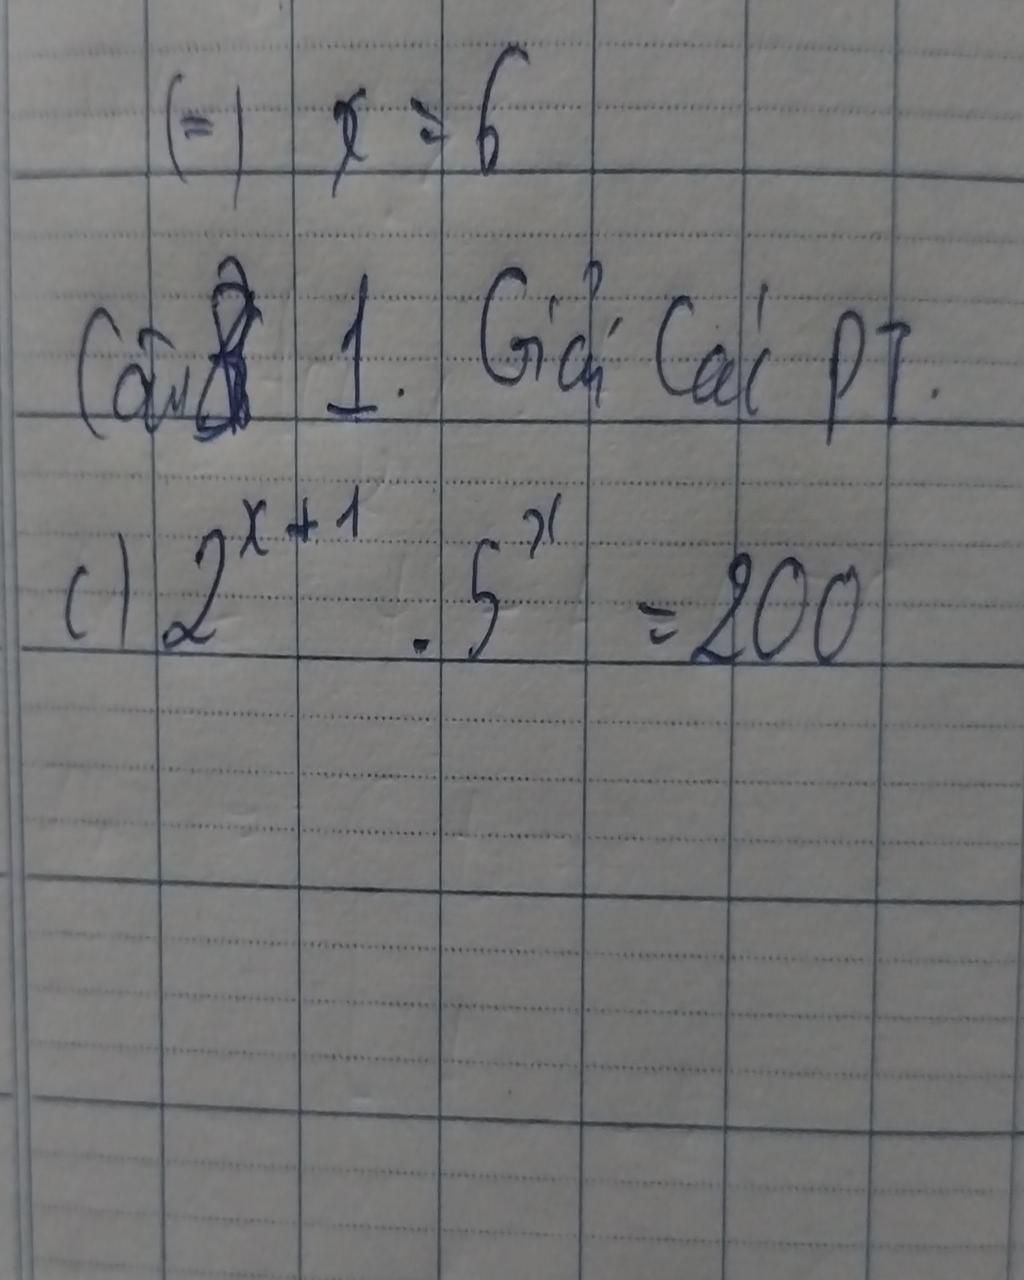 (=) x = 6
Câu 1. Giải Các PT.
c) 2^{x+1} . 5^x = 200